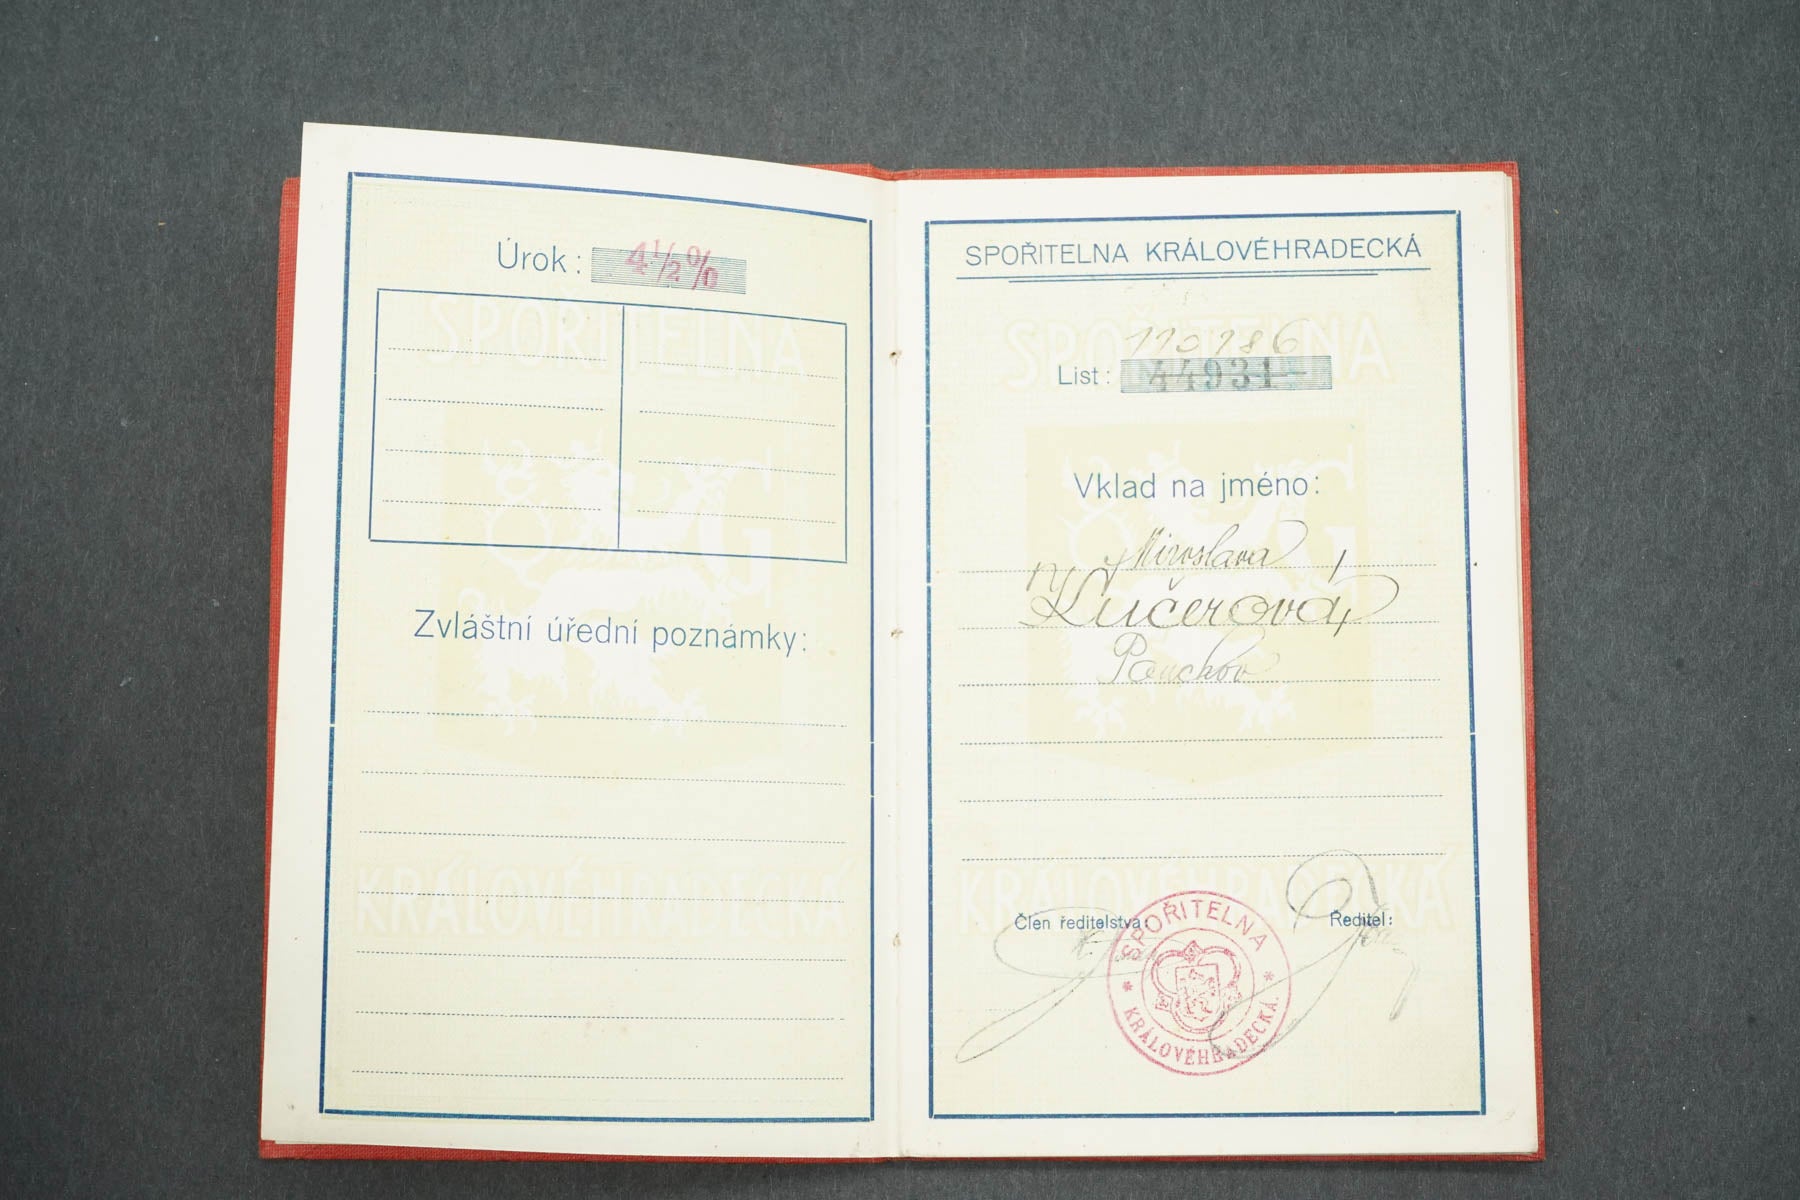 Úrok: 4½%
Zvláštní úřední poznámky:
SPOŘITELNA
KRÁLOVÉHRADECKÁ
SPOŘITELNA KRÁLOVÉHRADECKÁ
110186
List: 44931
Vklad na jméno:
Miroslava
Kučerová,
Pouchov
Člen ředitelstva:
Ředitel:
SPOŘITELNA
KRÁLOVÉHRADECKÁ
SPOŘITELNA
* KRÁLOVÉHRADECKÁ. *